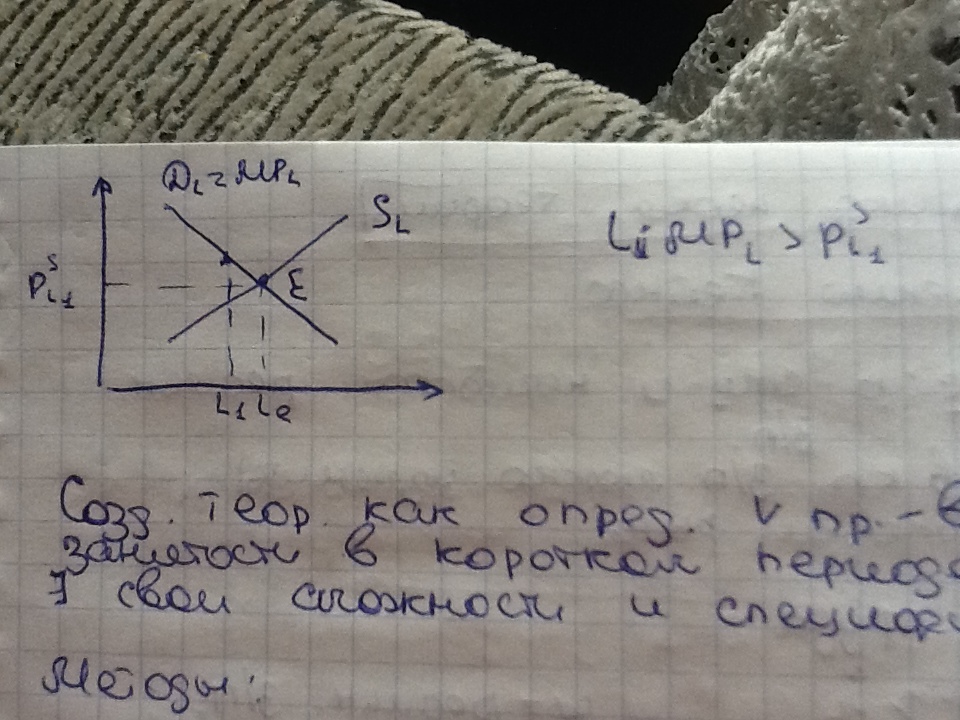 D_L = MP_L
S_L
L_1 MP_L > P^s_L1
P^s_L1
E
L_1 L_e
Созд. теор. как опред. V пр.-в
занятости в коротком период
свои сложности и специфи
Методы: